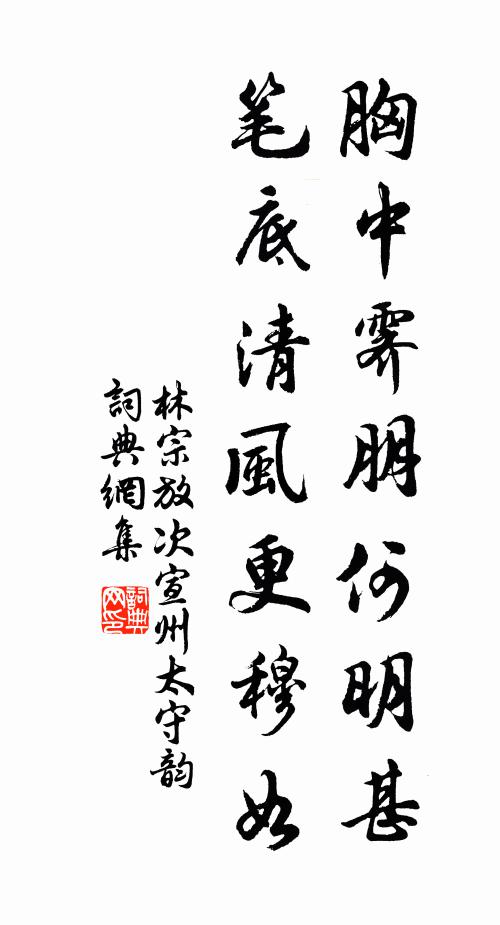 胸中霁朋何明甚
笔底清風更穆如
林宗放次宣州太守韵
詞典網集
詞典网印